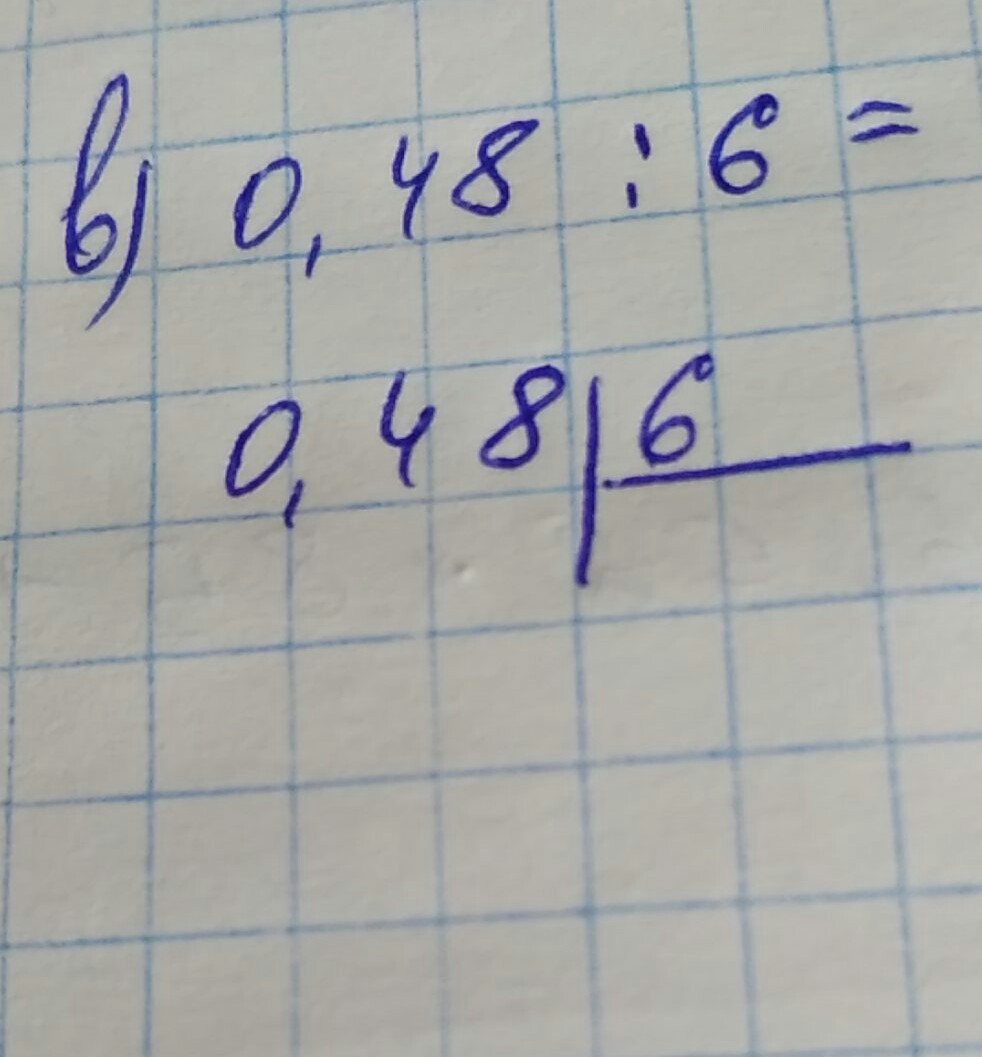 в) 0,48 : 6 =
0,48|6